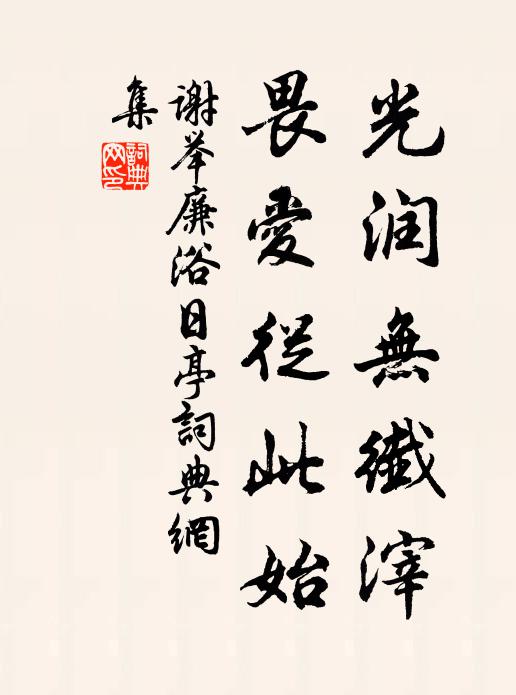 光润無纖滓
畏愛從此始
謝举廉浴日亭詞典網
集
詞典
网印